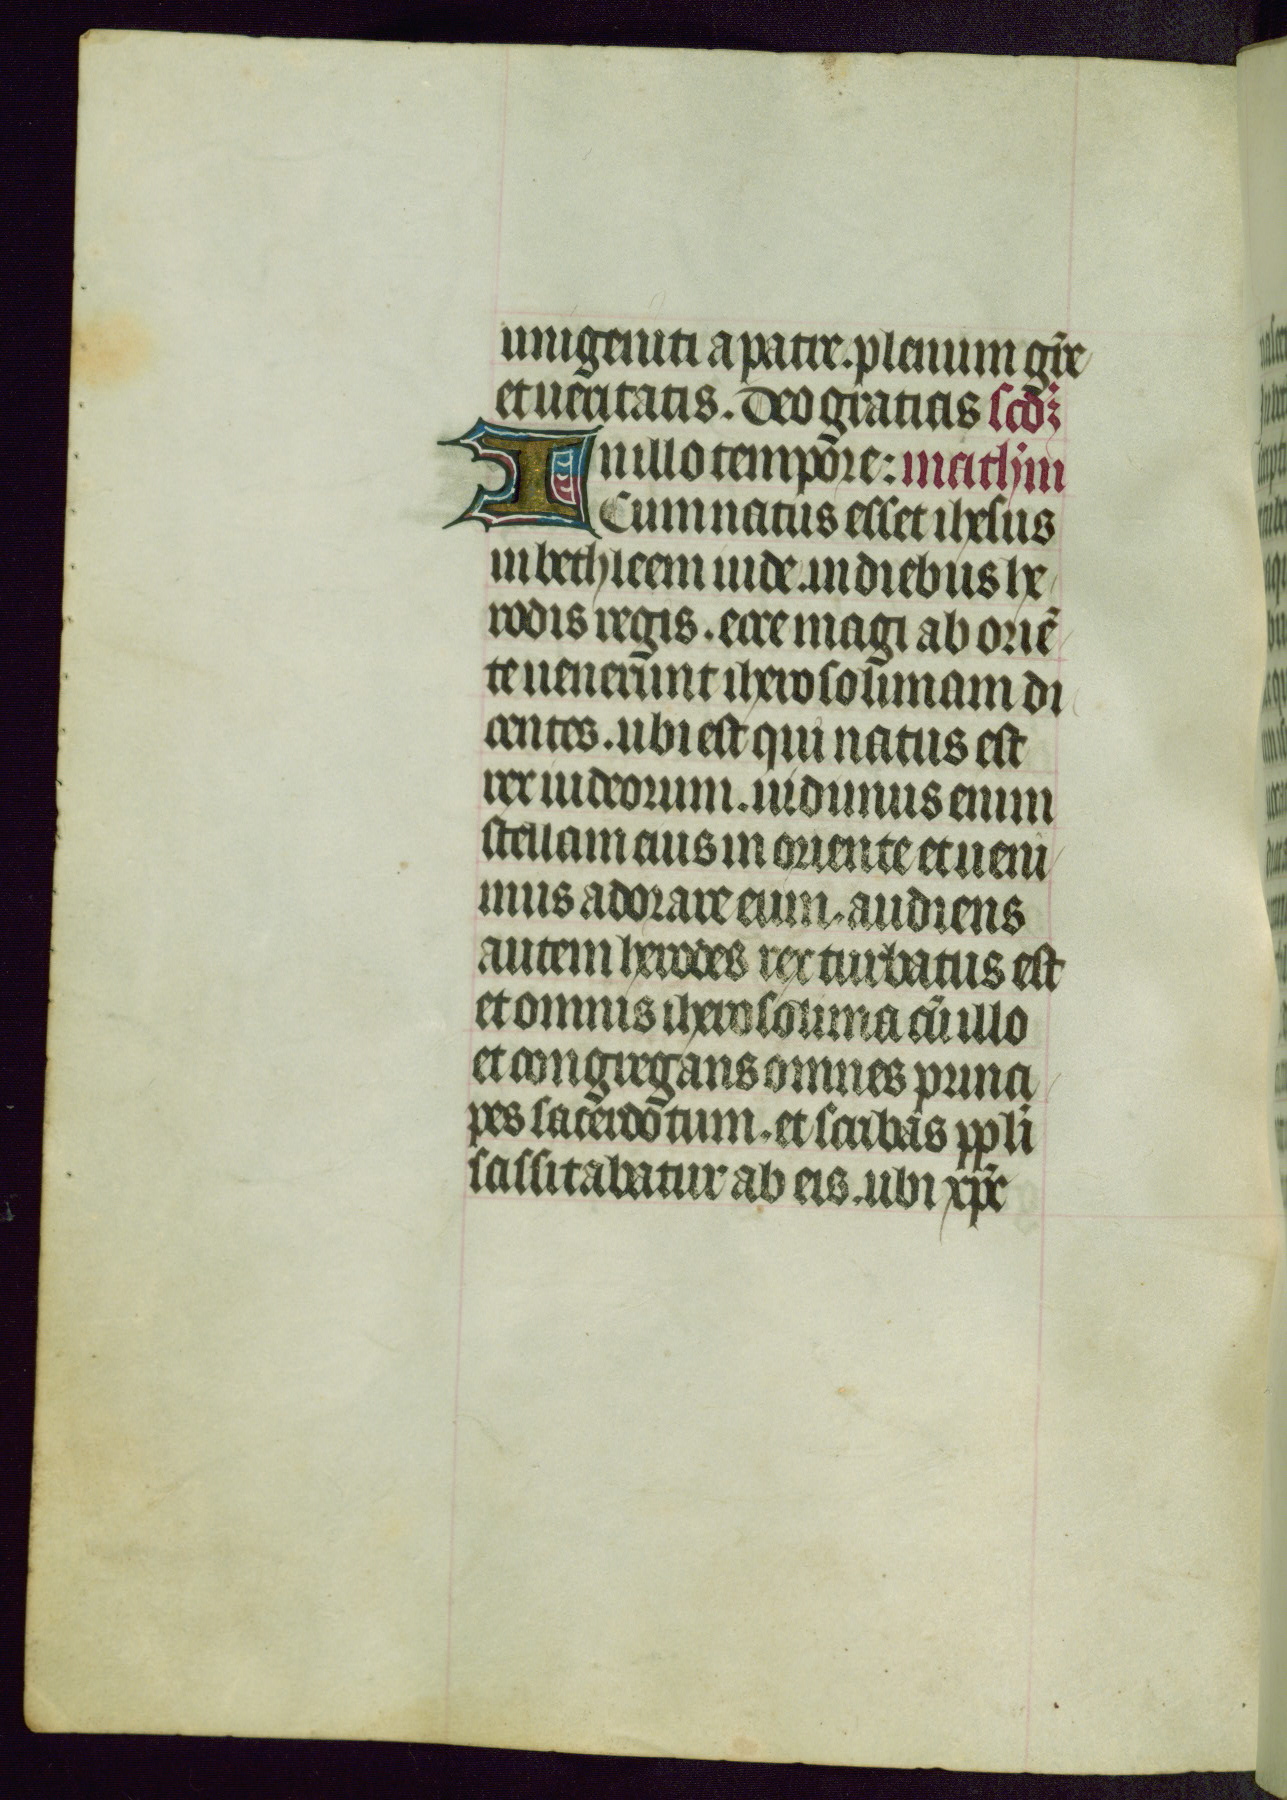 unigeniti a patre. plenum gr̄e
et ueritatis. Deo gratias scdꝫ
In illo tempore: mathm
Cum natus esset ihesus
in bethleem iude. in diebus he
rodis regis. ecce magi ab oriē
te uenerunt iherosolimam di
centes. ubi est qui natus est
rex iudeorum. uidimus enim
stellam eius in oriente et ueni
mus adorare eum. audiens
autem herodes rex turbatus est
et omnis iherosolima cū illo
et congregans omnes princi
pes sacerdotum. et scribas ppli
scissitabatur ab eis. ubi xp̄c